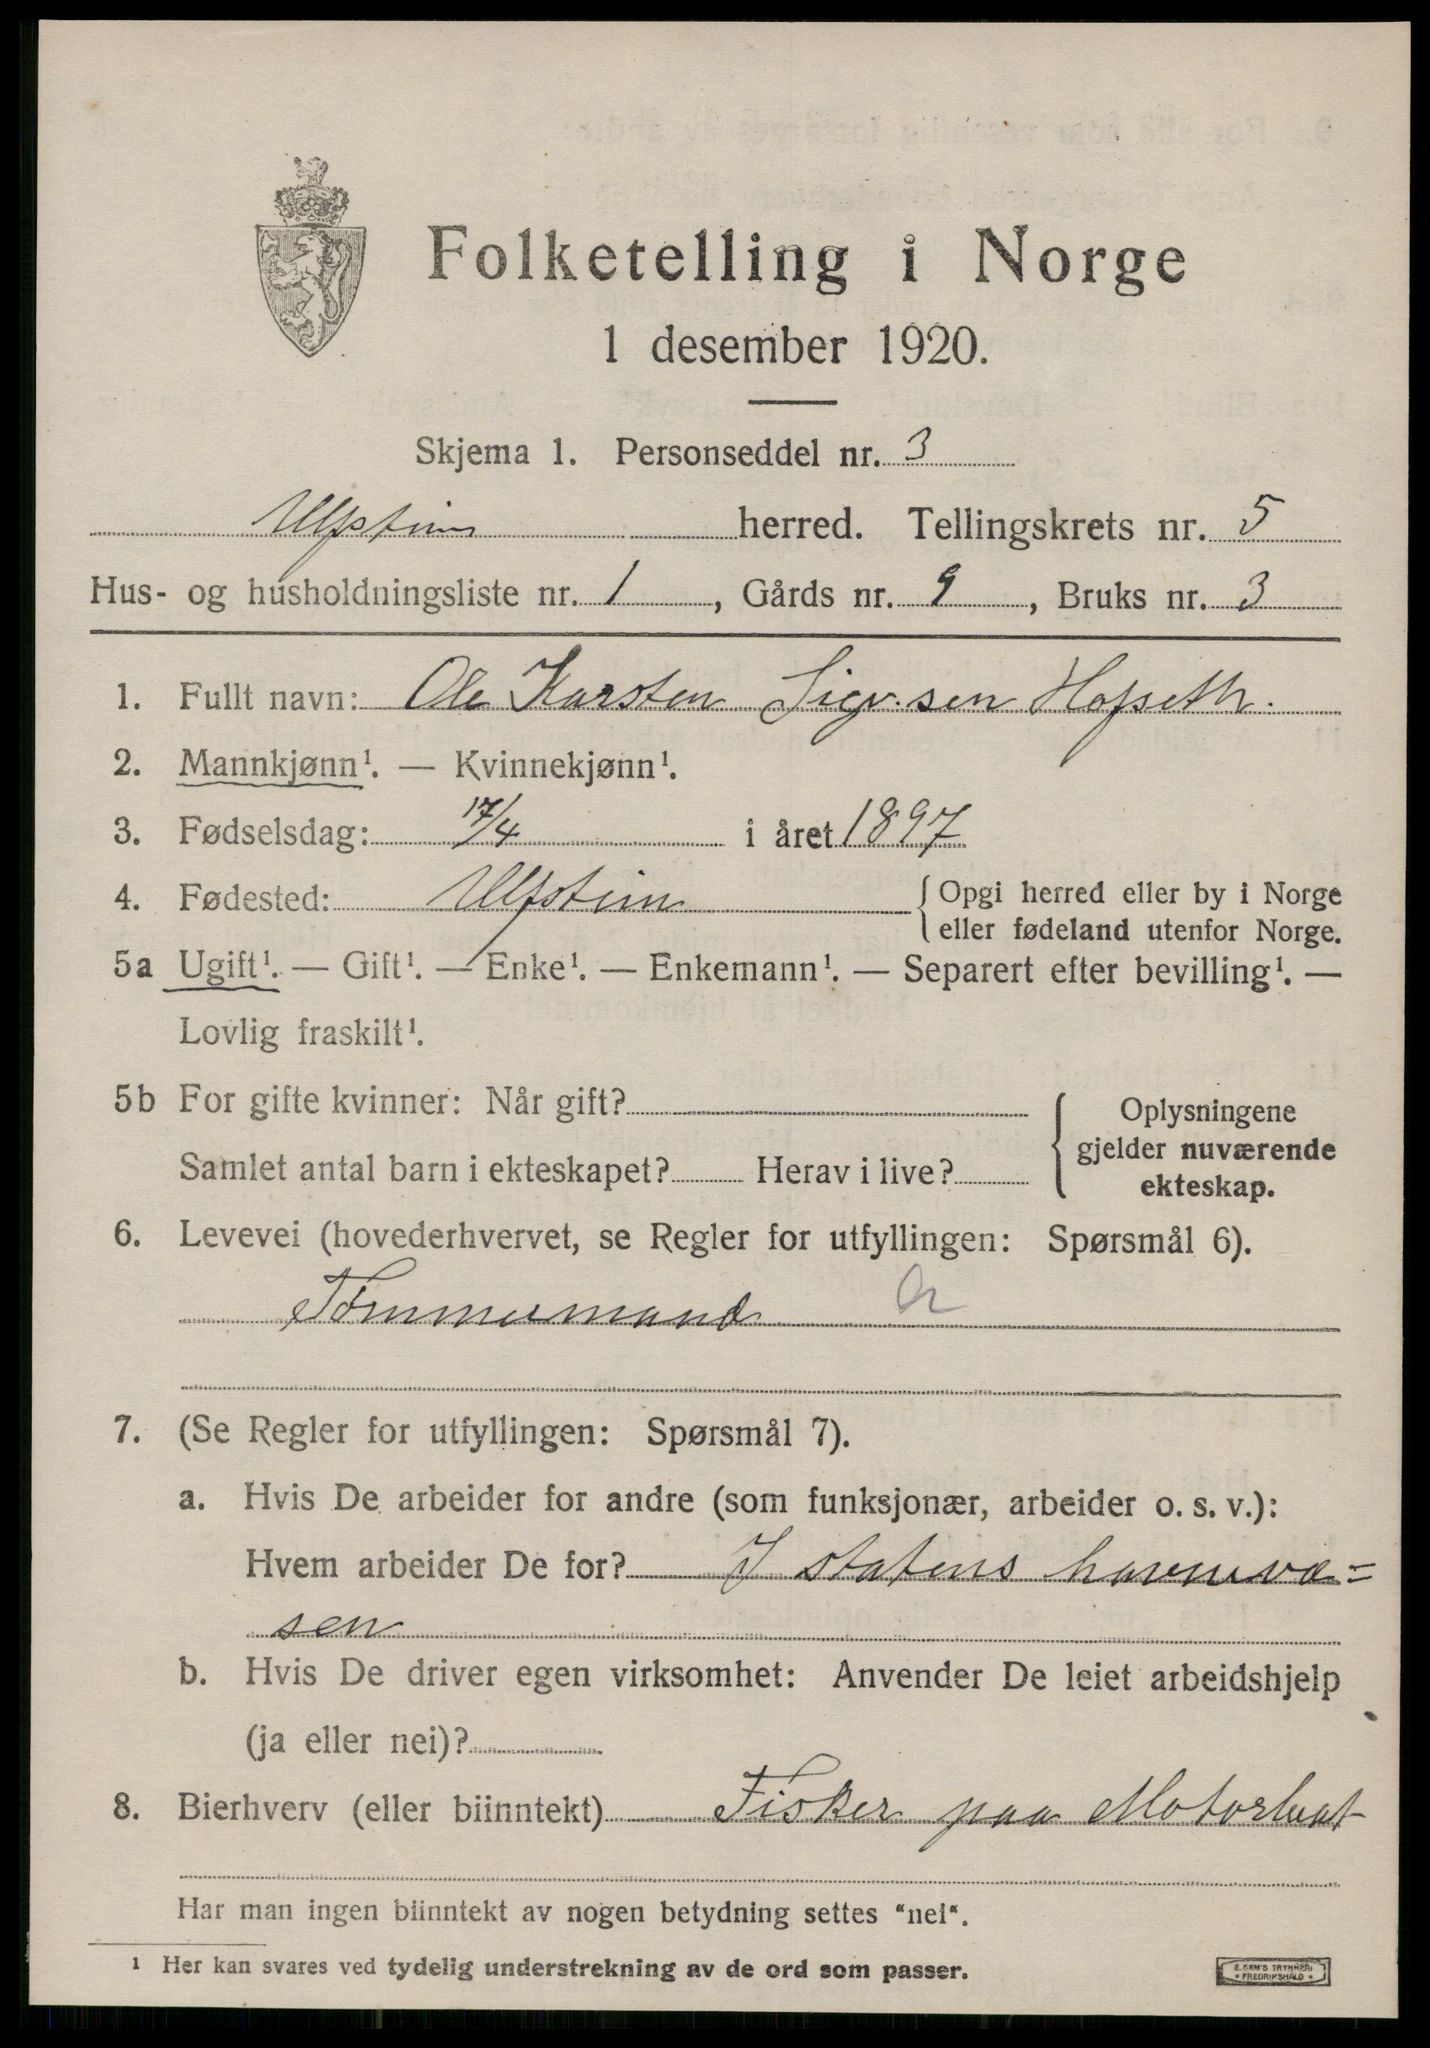 Folketelling i Norge
1 desember 1920.
Skjema 1. Personseddel nr. 3
Ulfstein herred. Tellingskrets nr. 5
Hus- og husholdningsliste nr. 1, Gårds nr. 9, Bruks nr. 3
1. Fullt navn: Ole Karsten Sigv.sen Hofseth.
2. Mannkjønn¹. — Kvinnekjønn¹.
3. Fødselsdag: 17/4 i året 1897
4. Fødested: Ulfstein { Opgi herred eller by i Norge
eller fødeland utenfor Norge.
5a Ugift¹. — Gift¹. — Enke¹. — Enkemann¹. — Separert efter bevilling¹. —
Lovlig fraskilt¹.
5b For gifte kvinner: Når gift?
Samlet antal barn i ekteskapet? Herav i live?
Oplysningene
gjelder nuværende
ekteskap.
6. Levevei (hovederhvervet, se Regler for utfyllingen: Spørsmål 6).
Tømmermand
7. (Se Regler for utfyllingen: Spørsmål 7).
a. Hvis De arbeider for andre (som funksjonær, arbeider o. s. v.):
Hvem arbeider De for? I statens havnevæ=
sen
b. Hvis De driver egen virksomhet: Anvender De leiet arbeidshjelp
(ja eller nei)?
8. Bierhverv (eller biinntekt) Fisker paa Motorbaat
Har man ingen biinntekt av nogen betydning settes "nei".
¹ Her kan svares ved tydelig understrekning av de ord som passer.
E. SEM'S TRYKKERI
FREDRIKSHALD